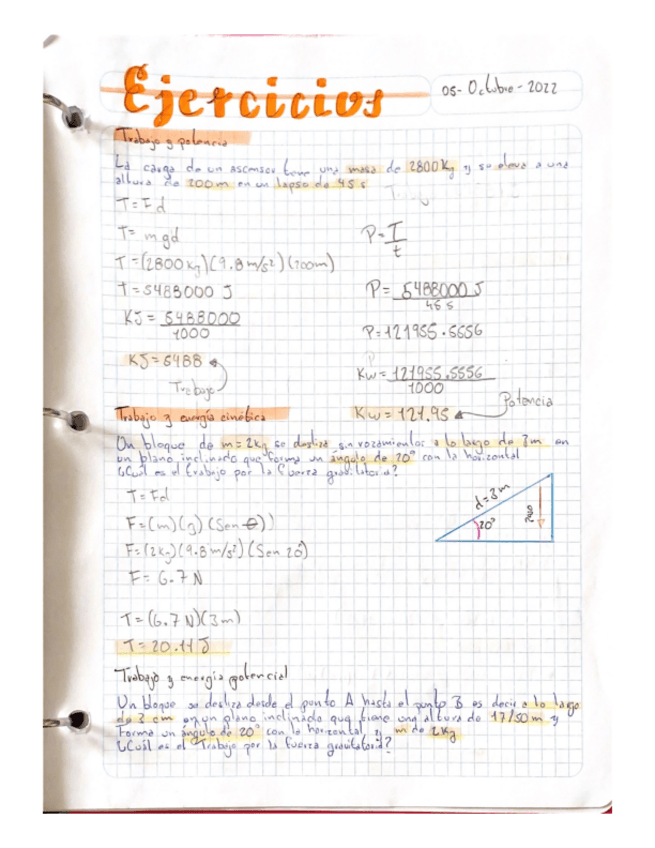 Ejercicios
05-Octubre-2022
Trabajo y potencia
La carga de un ascensor tiene una masa de 2800Kg y se eleva a una
altura de 200m en un lapso de 45 s
T=Fd
T=mgd
T=(2800 Kg)(9.8 m/s²)(200m)
T=5488000 J
KJ=5488000
1000
KJ=5488
Trabajo
P=T
t
P=5488000 J
45 s
P=121955.5556
Kw=121955.5556
1000
Kw=121.95
Potencia
Trabajo y energía cinética
Un bloque de m=2kg se desliza sin rozamientos a lo largo de 3m en
un plano inclinado que forma un ángulo de 20° con la horizontal
¿Cuál es el trabajo por la fuerza gravitatoria?
T=Fd
F=(m)(g)(Sen θ))
F=(2kg)(9.8 m/s²)(Sen 20)
F=6.7 N
T=(6.7 N)(3m)
T=20.11 J
d=3m
20°
Trabajo y energía potencial
Un bloque se desliza desde el punto A hasta el punto B es decir a lo largo
de 3 cm en un plano inclinado que tiene una altura de 17/50 m y
forma un ángulo de 20° con la horizontal y m de 2Kg
¿Cuál es el Trabajo por la fuerza gravitatoria?